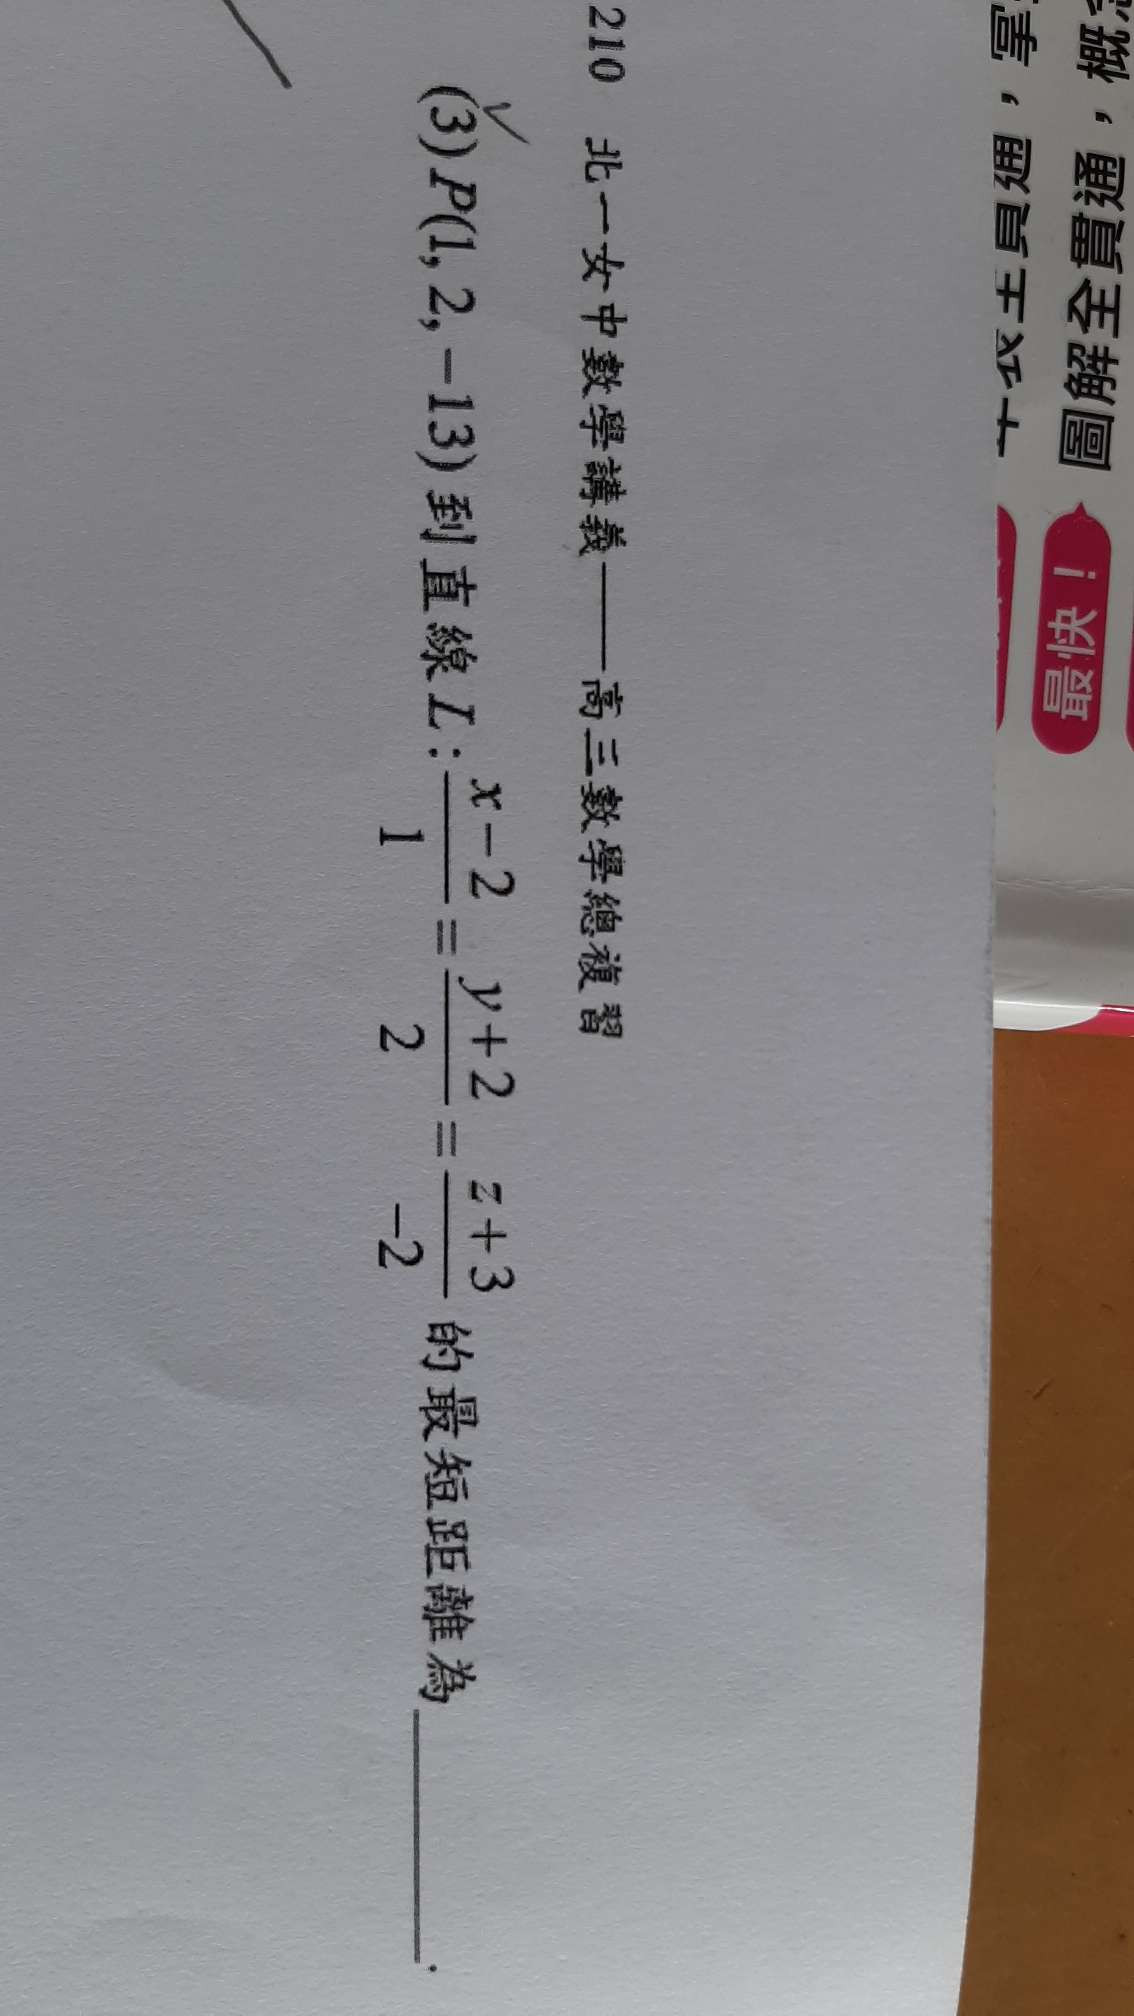 210 北一女中數學講義——高三數學總複習
(3) P(1, 2, −13) 到直線 L : \frac{x-2}{1} = \frac{y+2}{2} = \frac{z+3}{-2} 的最短距離為______.
圖解全貫通,概
最快!